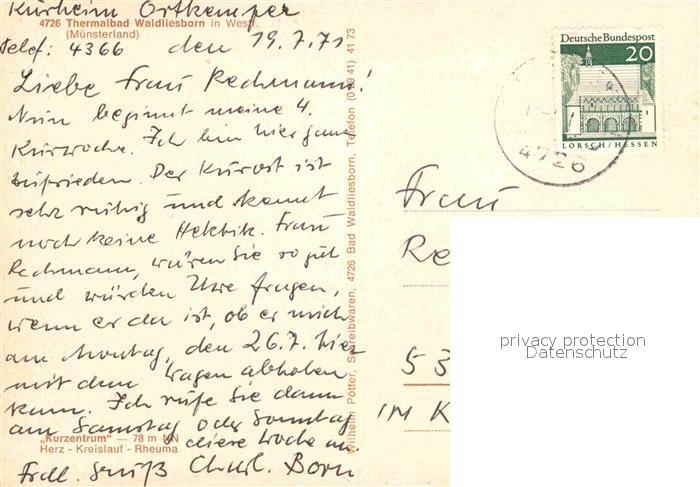 Kurheim Ortkemper
4726 Thermalbad Waldliesborn in Westf.
(Münsterland)
Telef: 4366 den 19.7.71
Liebe Frau Rechmann!
Nun beginnt meine 4.
Kurwoche. Ich bin hier ganz
zufrieden. Der Kurort ist
sehr ruhig und kennt
noch keine Hektik. Frau
Rechmann, wären Sie so gut
und würden Uwe fragen,
wenn er da ist, ob er mich
am Montag, den 26.7. hier
mit dem Wagen abholen
kann. Ich rufe Sie dann
am Samstag oder Sonntag
diese Woche an.
"Kurzentrum" — 78 m NN
Herz - Kreislauf - Rheuma
Frdl. Gruß Charl. Born
Wilhelm Pötter, Schreibwaren, 4726 Bad Waldliesborn, Telefon (0 29 41) 41 73
Deutsche Bundespost
20
LORSCH/HESSEN
4726
Frau
Re
privacy protection
Datenschutz
53
IM K